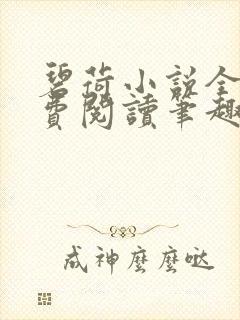 碧荷小说全
费閱讀筆趣
成神麼麼哒